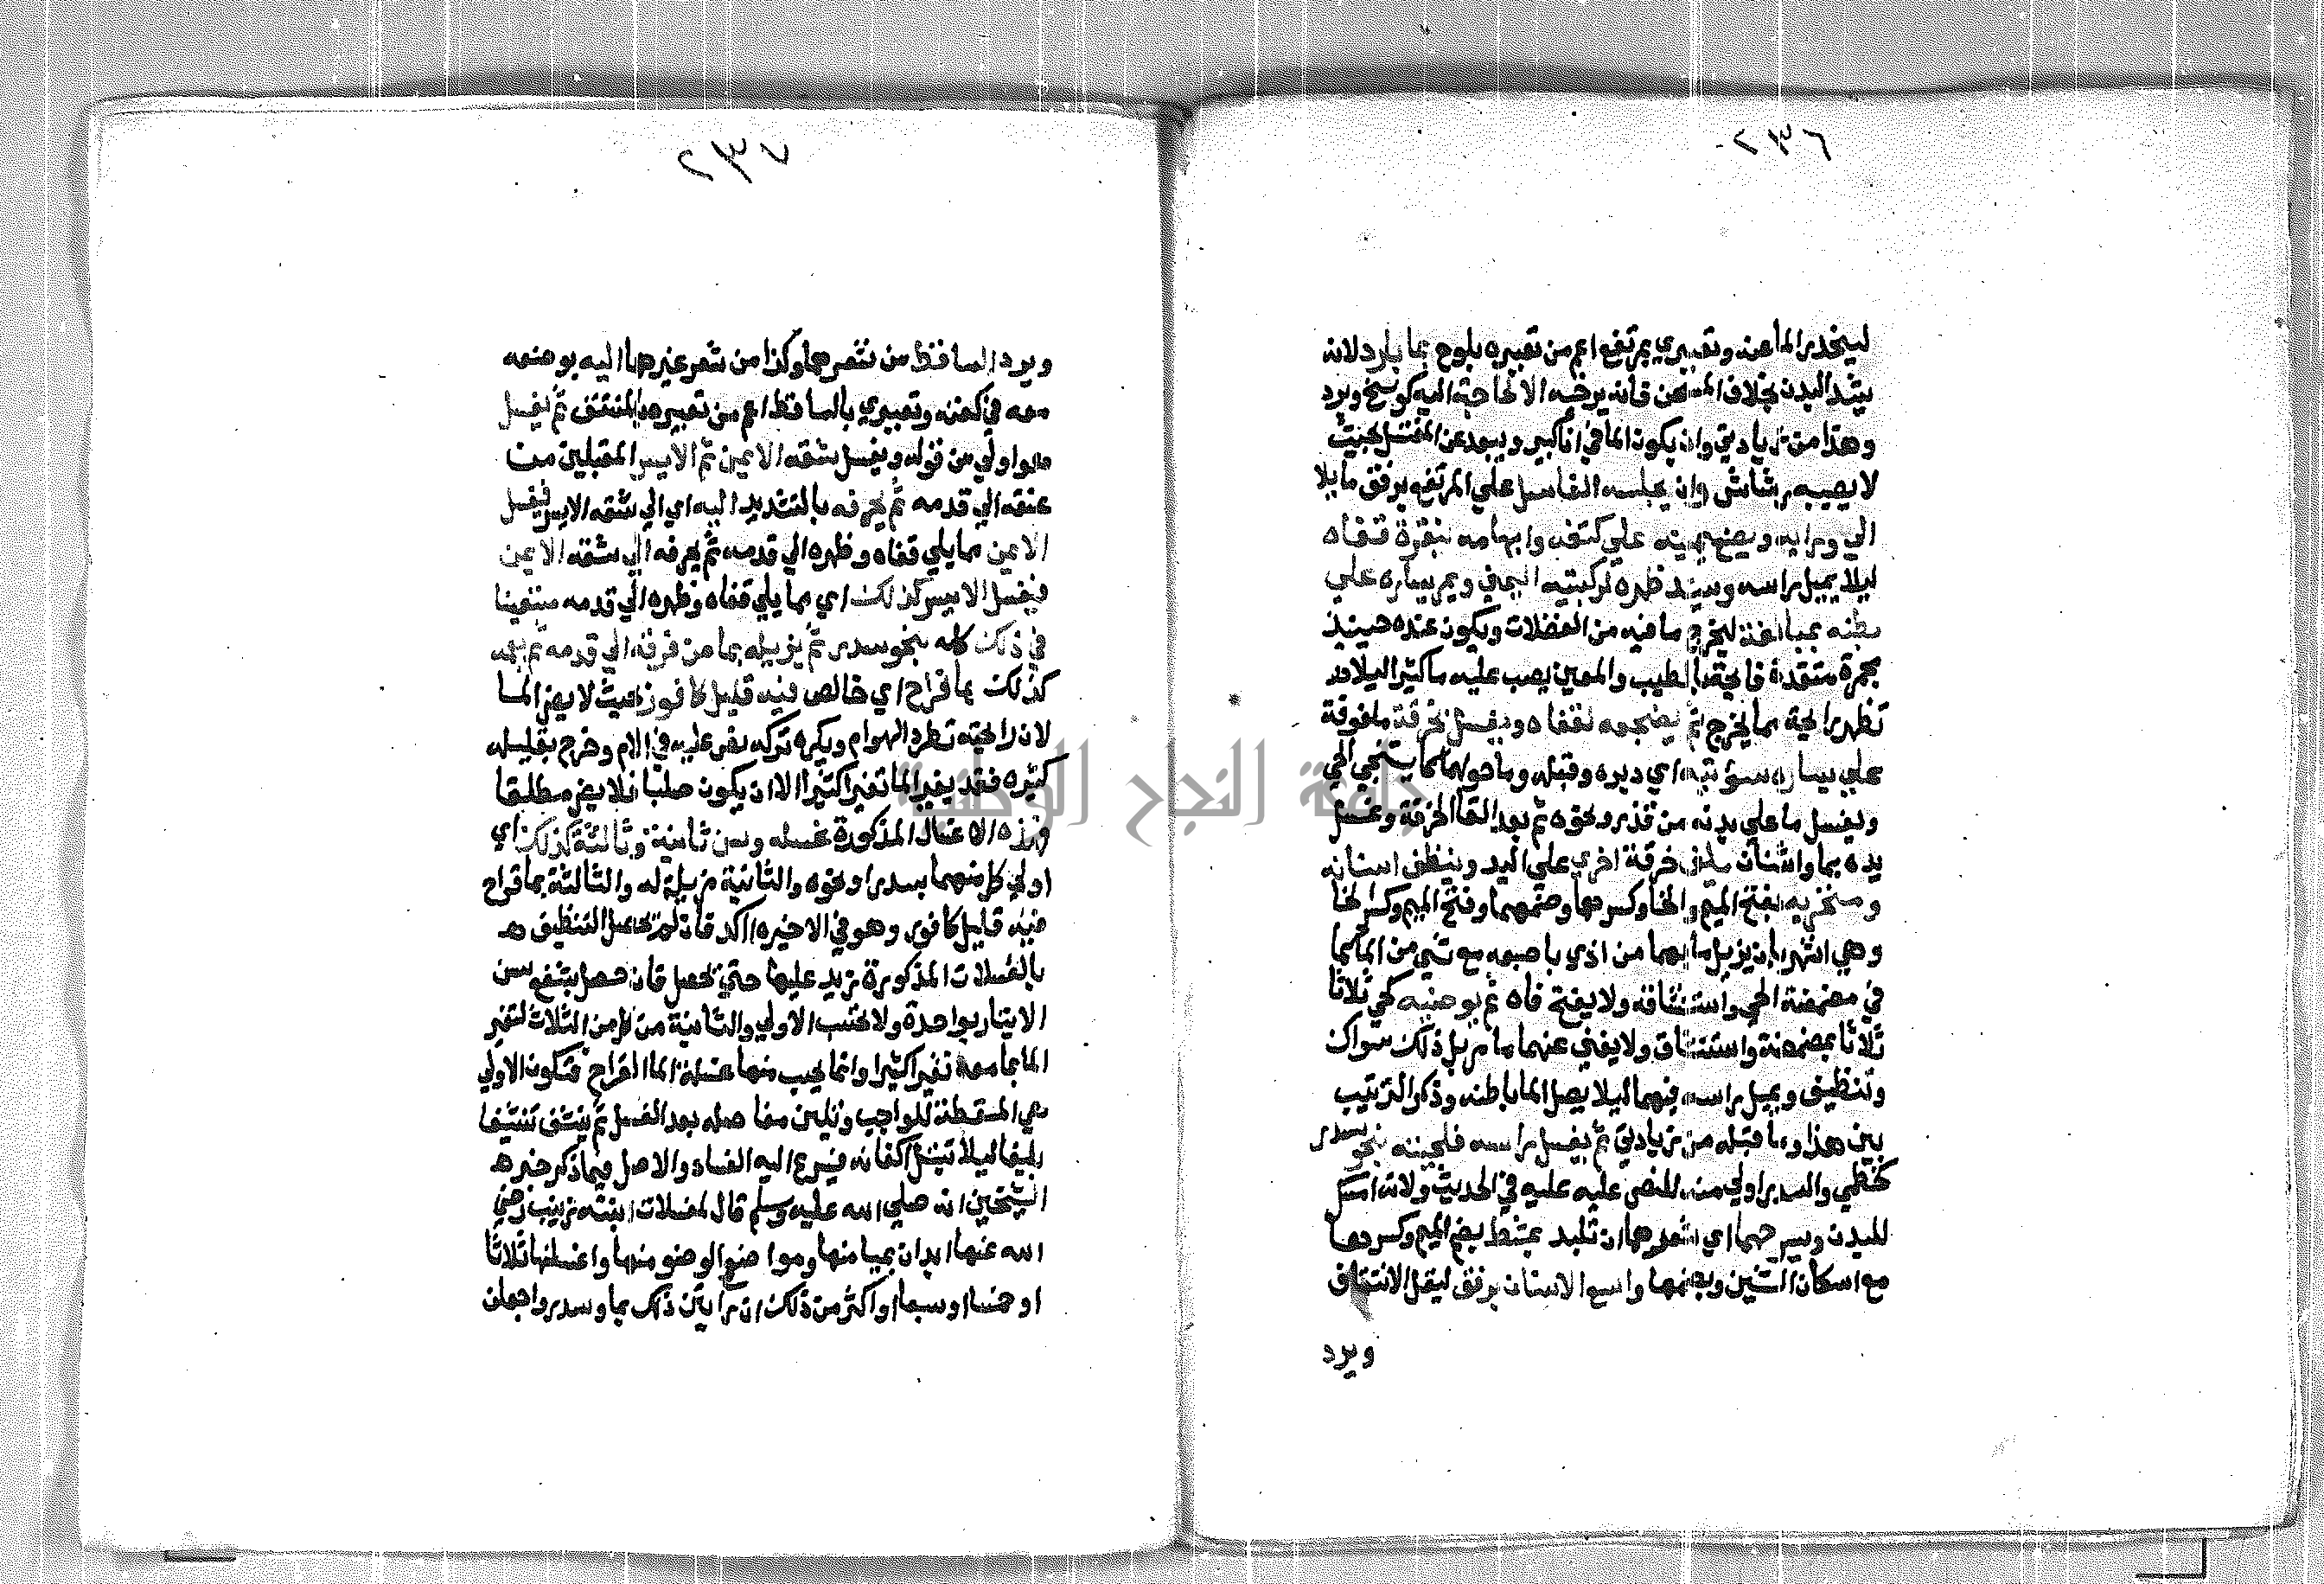 ٢٣٦
لينحدر الما عنه وتعبيري بمرتفع اعم من تعبيره بلوح بما بارد لانه
يشد البدن بخلاف المسخن فانه يرخيه الا لحاجة اليه كوسخ وبرد
وهذا من زيادتي وان يكون الما في انا كبير ويبعد عن المغتسل بحيث
لا يصيبه رشاش وان يجلسه الغاسل علي المرتفع برفق مايلا
الي ورايه ويضع يمينه علي كتفه وابهامه بنقرة قفاه
ليلا يميل راسه ويسند ظهره لركبتيه اليمني ويمر يساره علي
بطنه بمبالغة ليخرج ما فيه من الفضلات ويكون عنده حينيذ
مجمرة متقدة فايحة بالطيب والمعين يصب عليه ما كثيرا ليلا
تظهر رايحة مما يخرج ثم يضجعه لقفاه ويغسل بخرقة ملفوفة
علي يساره سوءتيه اي دبره وقبله وما حولهما كما يستنجي الحي
ويغسل ما علي بدنه من قذر ونحوه ثم بعد القا الخرقة وغسل
يده بما واشنان يلف خرقة اخري علي اليد وينظف اسنانه
ومنخريه بفتح الميم والخا وكسرهما وضمهما وفتح الميم وكسر الخا
وهي اشهر بان يزيل ما بهما من اذي باصبعه مع شي من الما كما
في مضمضة الحي واستنشاقه ولا يفتح فاه ثم يوضيه كحي ثلاثا
ثلاثا بمضمضة واستنشاق ولا يغني عنهما ما مر بل ذلك سواك
وتنظيف ويميل راسه فيهما ليلا يصل الما باطنه وذكر الترتيب
بين هذا وما قبله من زيادتي ثم يغسل راسه فلحيته بنحو سدر
كخطمي والسدر اولي منه للنص عليه عليه في الحديث ولانه امسك
للبدن ويسرحهما اي شعرهما ان تلبد بمشط بضم الميم وكسرها
مع اسكان الشين وبضمها واسع الاسنان برفق ليقل الانتتاف
ويرد
٢٣٧
ويرد الساقط من شعرهما وكذا من شعر غيرهما اليه بوضعه
معه في كفنه وتعبيري بالساقط اعم من تعبيره بالمنتتف ثم يغسل
هو اولي من قوله ويغسل شقه الايمن ثم الايسر المقبلين من
عنقه الي قدمه ثم يحرفه بالتشديد اليه اي الي شقه الايسر فيغسل
الايمن مما يلي قفاه وظهره الي قدمه ثم يحرفه الي شقه الايمن
فيغسل الايسر كذلك اي مما يلي قفاه وظهره الي قدمه مستعينا
في ذلك كله بنحو سدر ثم يزيله بما من فرقه الي قدمه ثم يعمه
كذلك بما قراح اي خالص فيه قليل كافور بحيث لا يضر الما
لان رايحته تطرد الهوام ويكره تركه نص عليه في الام وخرج بقليله
كثيره فقد يغير الما تغيرا كثيرا الا ان يكون صلبا فلا يضر مطلقا
وهذه الاغسال المذكورة غسله وسن ثانية وثالثة كذلك اي
اولي كل منهما بسدر او نحوه والثانية مزيلة له والثالثة بما قراح
فيه قليل كافور وهو في الاخيره اكد فان لم تحصل التنظيف
بالغسلات المذكورة زيد عليها حتي تحصل فان حصل بشفع سن
الايتار بواحدة ولا تحسب الاولي والثانية من كل من الثلاث لتغير
الما بما معه تغيرا كثيرا وانما تحسب منها غسلة الما القراح فتكون الاولي
هي المسقطة للواجب وتلين مفاصله بعد الغسل ثم ينشف تنشيفا
بليغا ليلا تبتل اكفانه فيسرع اليه الفساد والاصل فيما ذكر خبر
الشيخين انه صلي الله عليه وسلم قال لغسلات ابنته زينب رضي
الله عنها ابدان بميامنها ومواضع الوضو منها واغسلنها ثلاثا
او خمسا او سبعا او اكثر من ذلك ان رايتن ذلك بما وسدر واجعلن
جامعة النجاح الوطنية